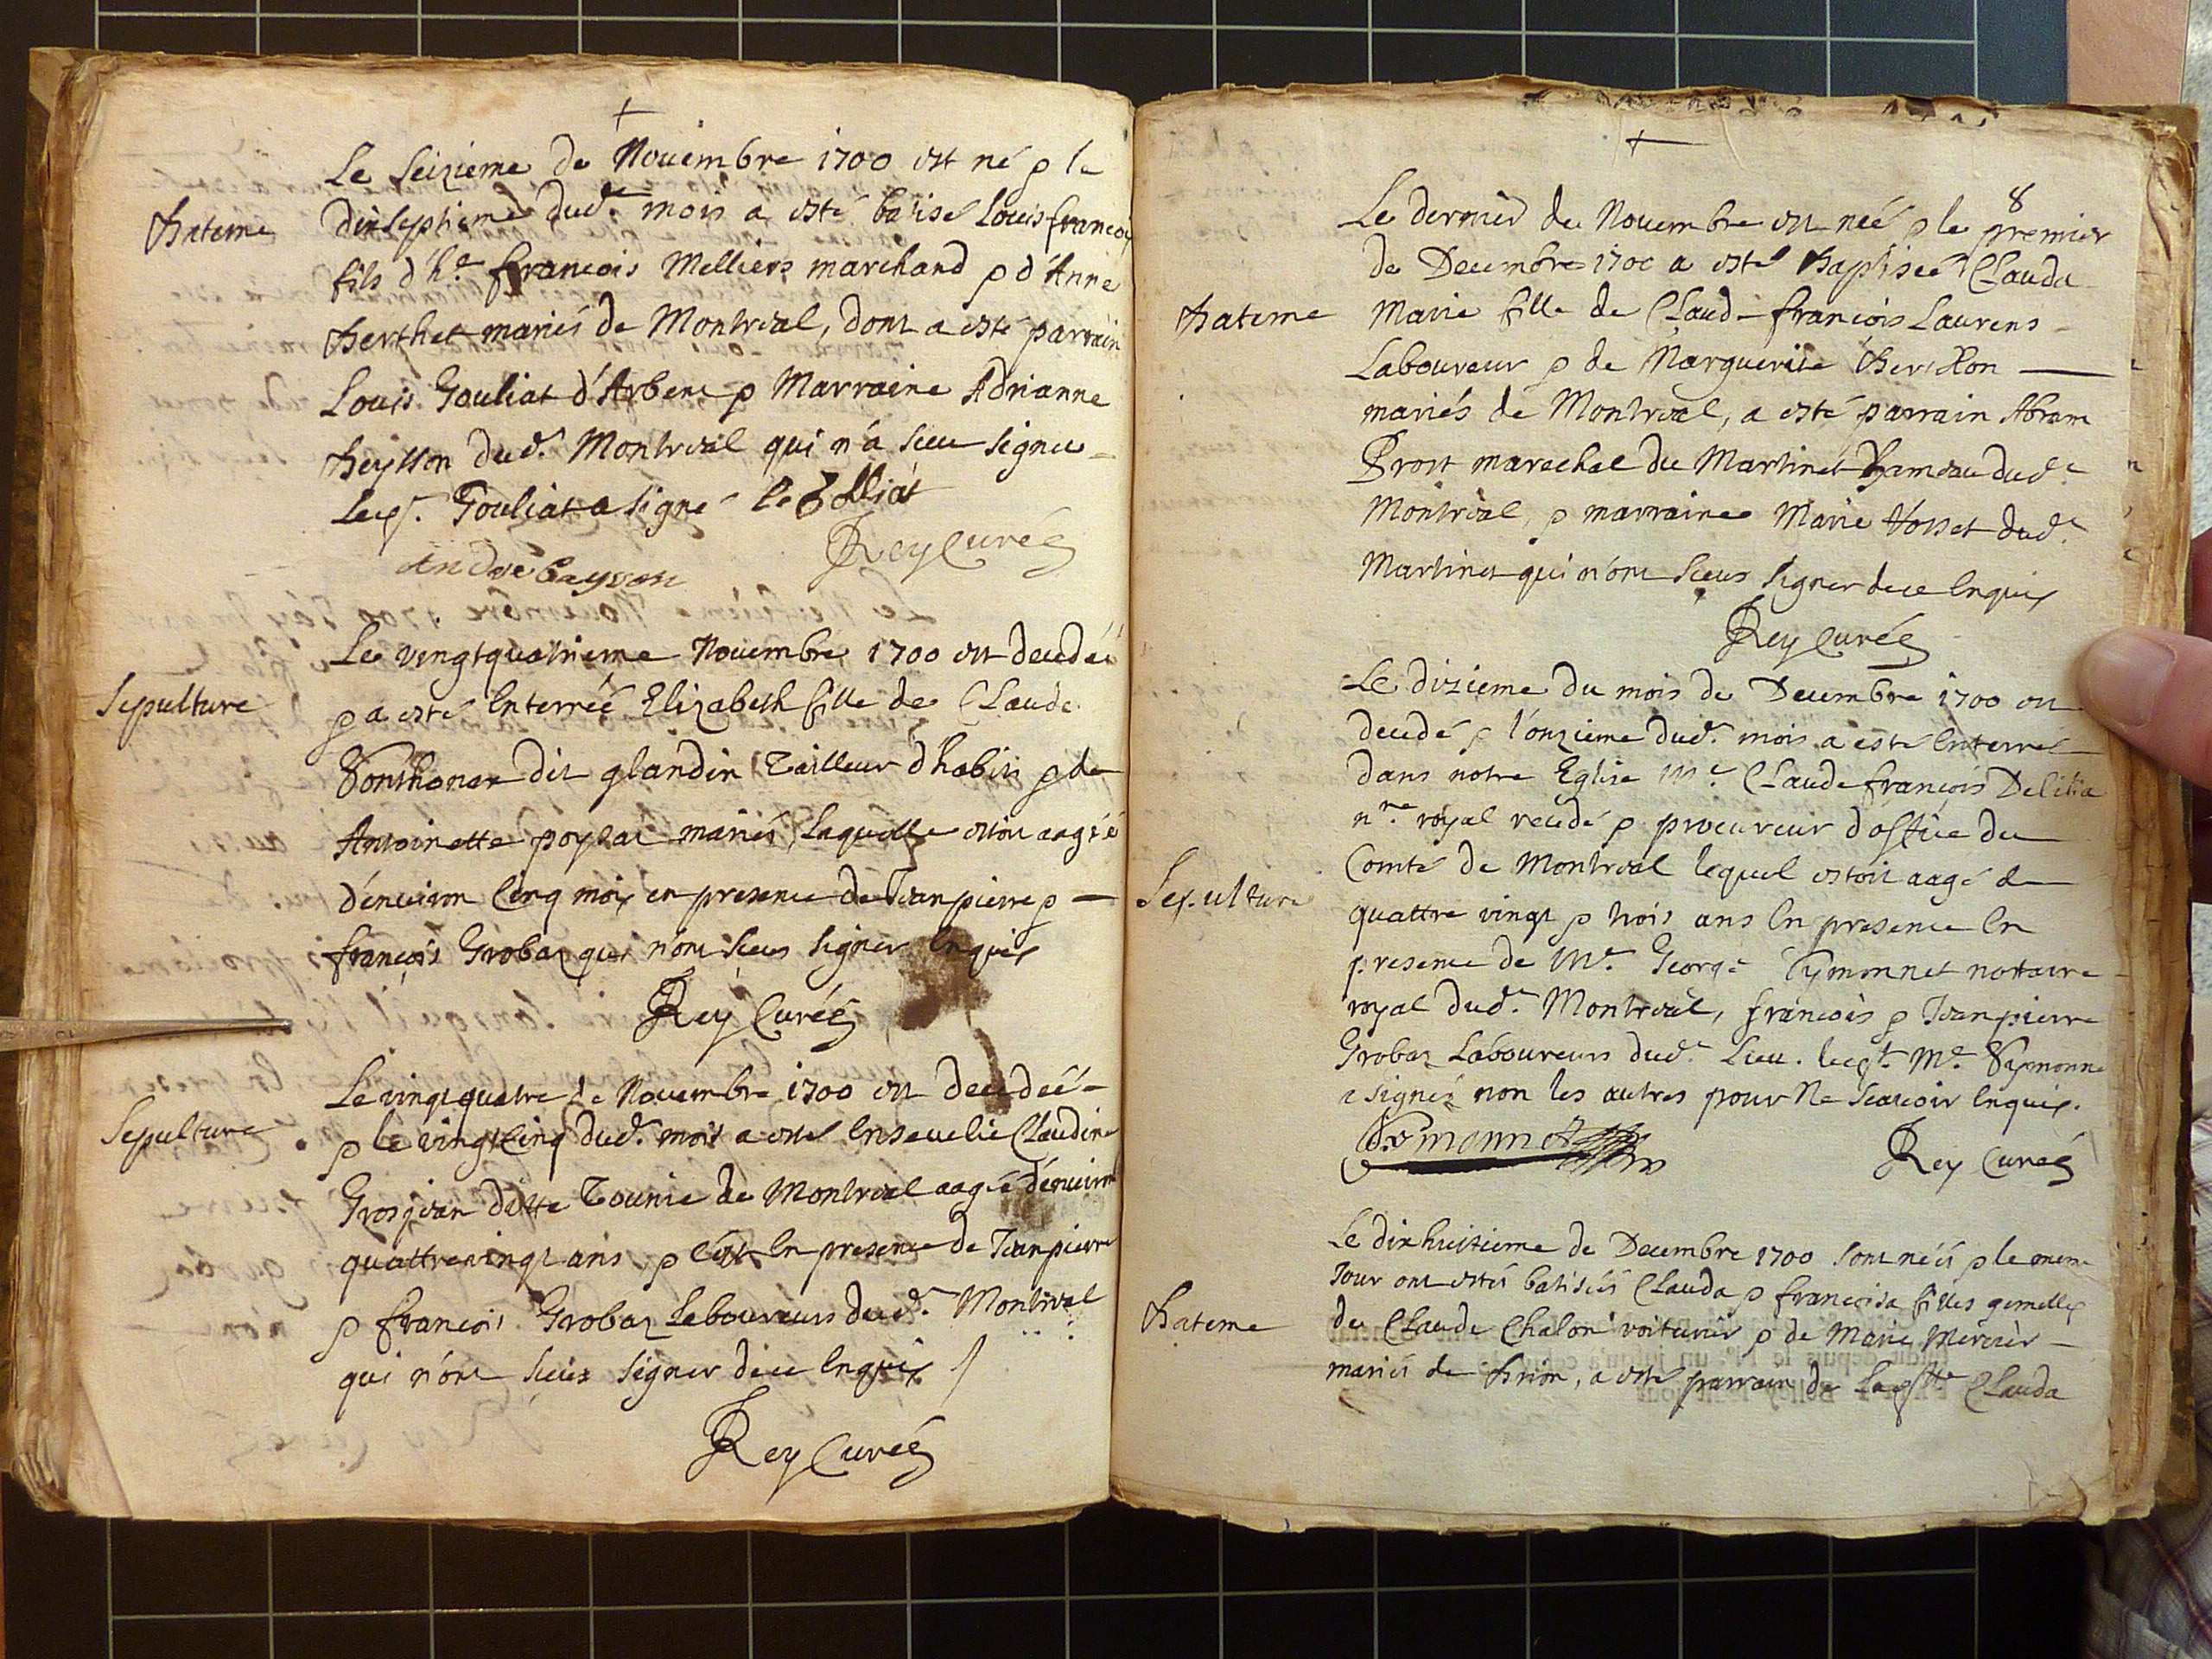 Le seizieme de Nouembre 1700 est né & le
Bateme
dixseptieme dud.t mois a esté batisé Louis françois
fils d'h.e françois Melliers marchand & d'Anne
Berthet mariés de Montreal, dont a esté parrain
Louis Gouliat d'Arbent & Marraine Adrianne
Beysson dud.t Montreal qui n'a sceu signer
Gouliat a signé
André beysson
Rey Curé
Le vingtquatrieme Nouembre 1700 est decedée
Sepulture
& a esté Enterrée Elizabeth fille de Claude
dit glandin Tailleur d'habits & de
Antoinette mariés, laquelle estoit aagée
d'enuiron Cinq mois en presence de Jeanpierre &
françois Grobaz qui n'ont sceus signer Enquis
Rey Curé
Le vingtquatre de Nouembre 1700 est decedeé
Sepulture
& le vingtCinq dud.t mois a esté Enseuelie Claudine
Grosjean ditte Tounie de Montreal aagée d'enuiron
quattrevingt ans, & c'est En presence de Jeanpierre
& françois Grobaz Laboureurs dud.t Montreal
qui n'ont sceus signer de ce Enquis
Rey Curé
8
Le dernier de Nouembre est neé & le premier
de Decembre 1700 a esté Baptiseé Clauda
Bateme
Marie fille de Claude françois Laurens
Laboureur & de Marguerite
mariés de Montreal, a esté parrain Abram
Prost marechal du Martinet dud.t
Montreal, & marraine Marie dud.t
Martinet qui n'ont sceus signer de ce Enquis
Rey Curé
Le dizieme du mois de Decembre 1700 est
decedé & l'onzieme dud.t mois a esté Enterré
dans notre Eglise M.e Claude françois Delilia
n.re royal & procureur d'office du
Sepulture
Comté de Montreal lequel estoit aagé de
quattre vingt & trois ans En presence En
presence de M.e George Symonnet nottaire
royal dud.t Montreal, françois & Jeanpierre
Grobaz Laboureurs dud.t Lieu. M.e Symonne
a signés non les autres pour Ne Scauoir Enquis.
Symonnet
Rey Curé
Le dixhuitieme de Decembre 1700 sont néés & le meme
Jour ont estés batisées Clauda & françoisa filles gemelles
Bateme
de Claude Chalon voiturier & de Marie Mercier
mariés de Brion, a esté parrain de Clauda